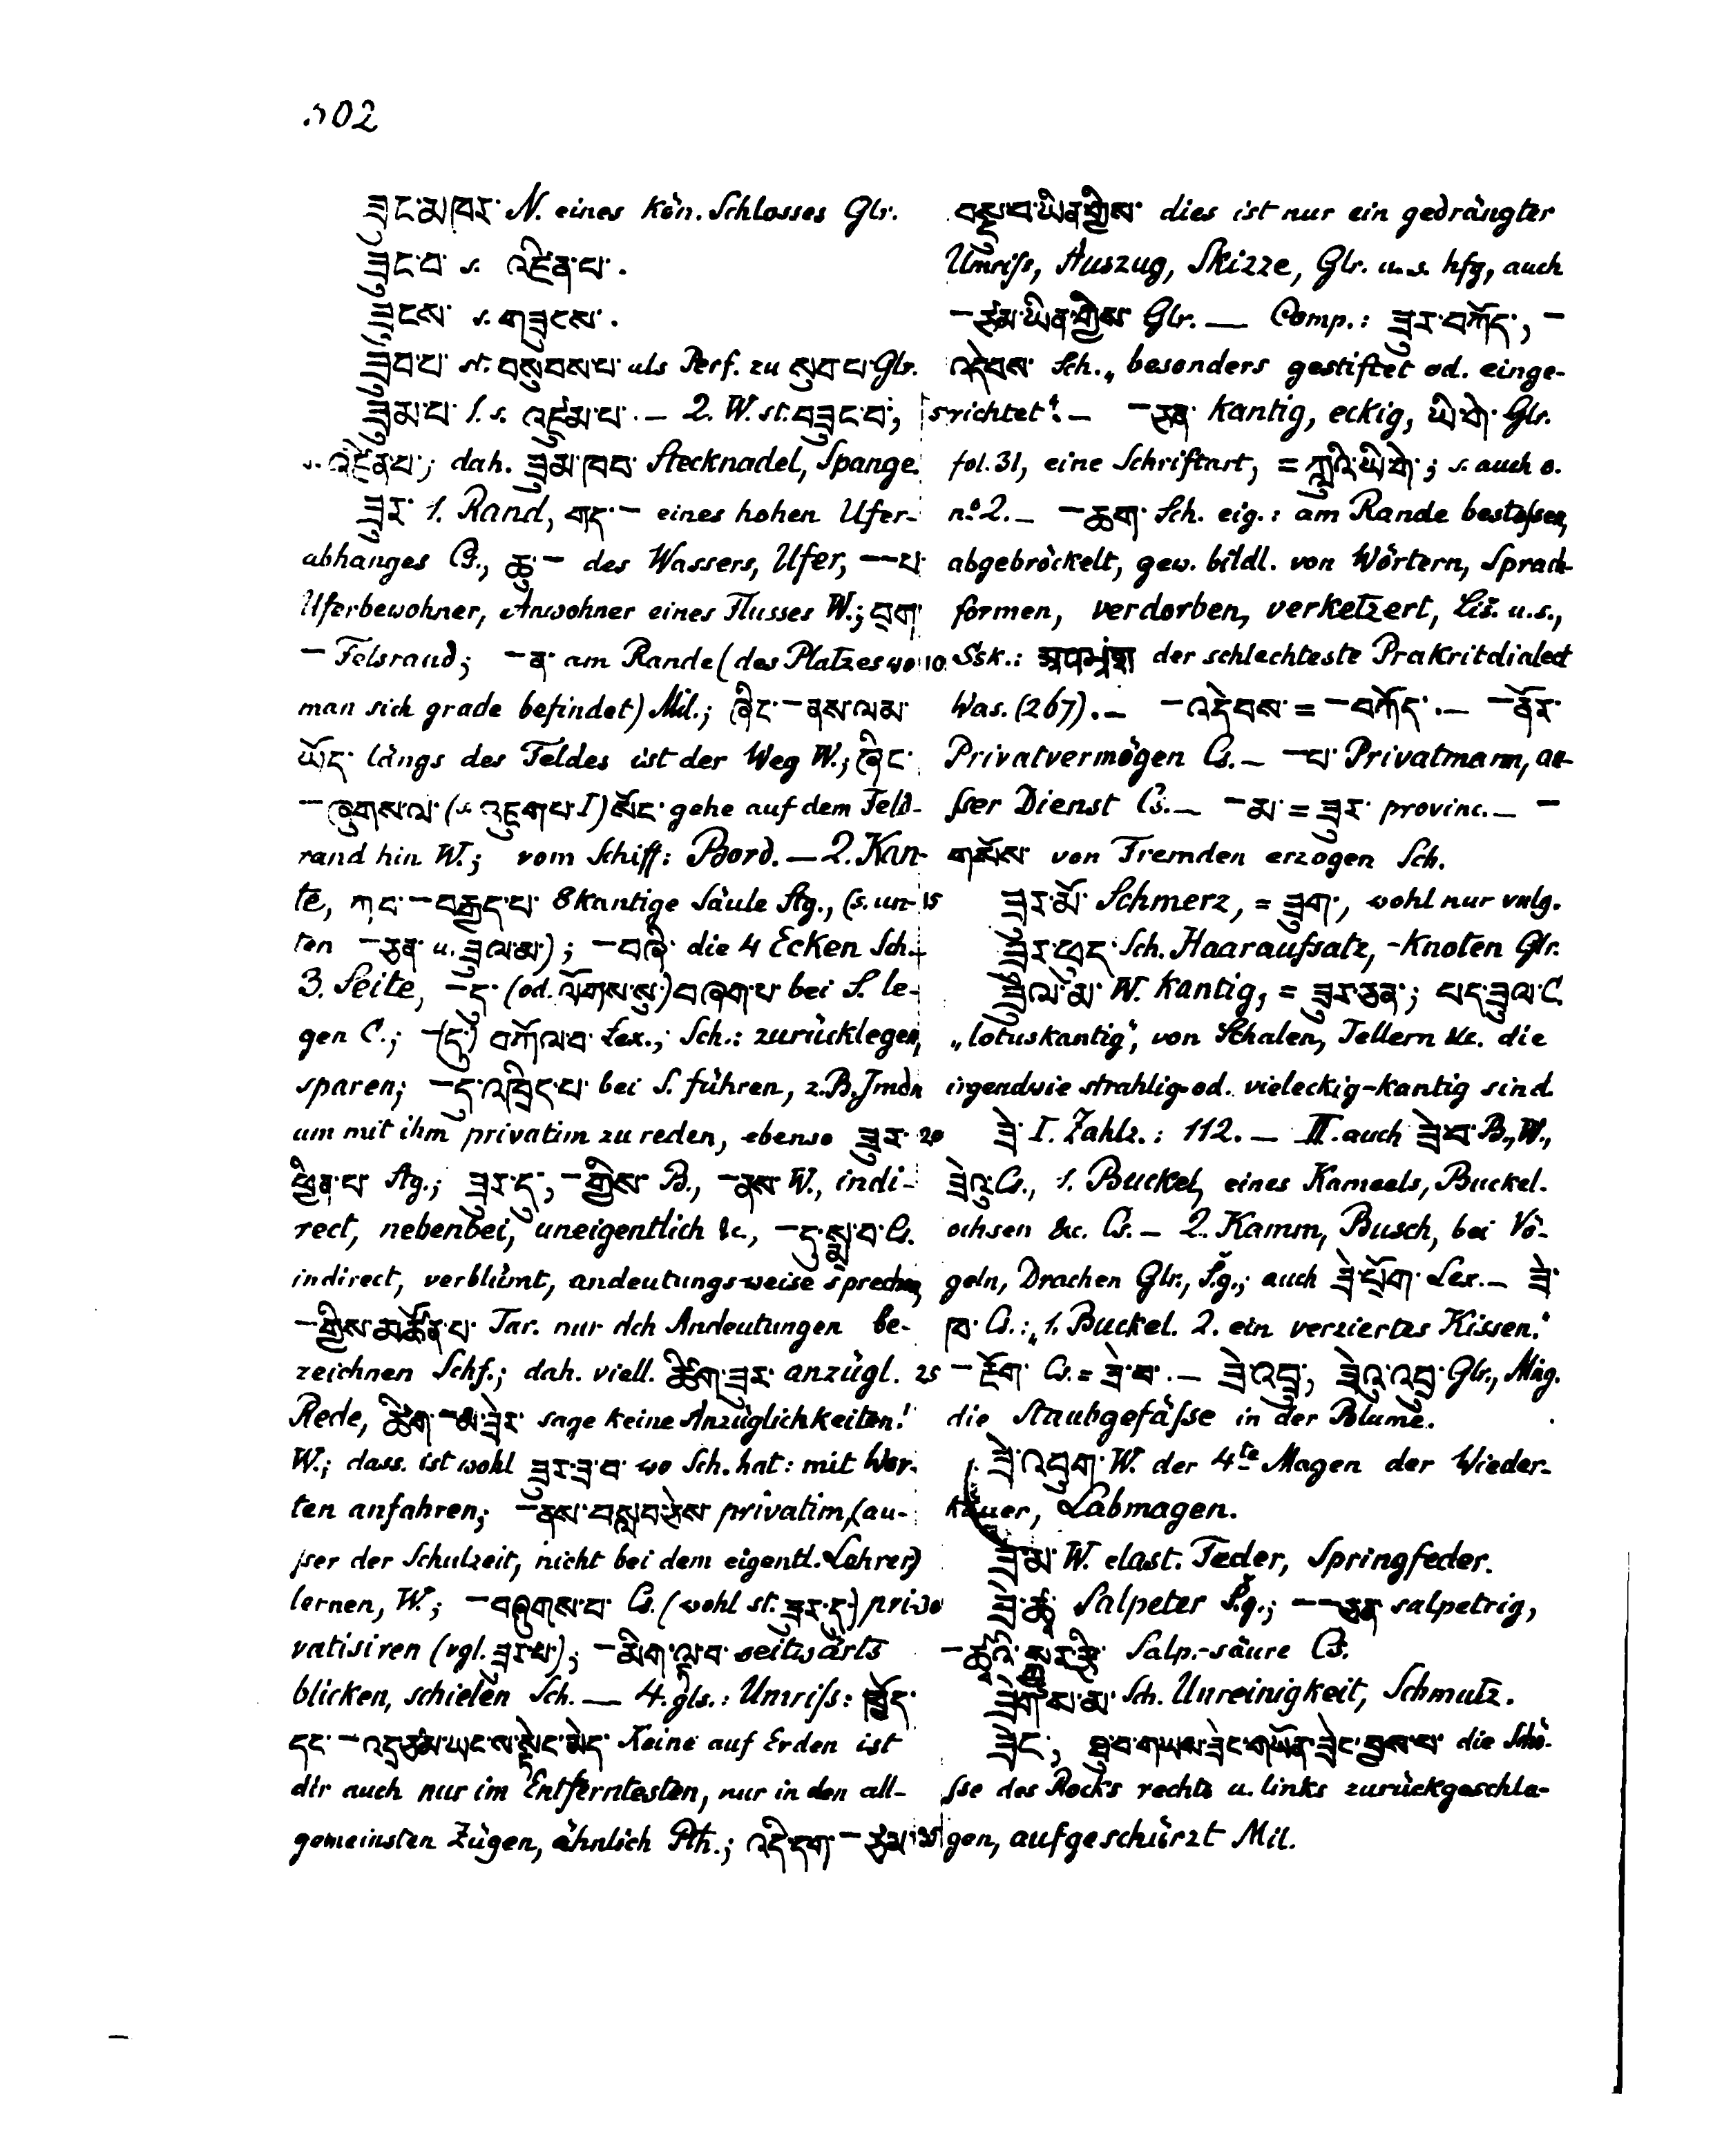 502
ཟང་མཁར་ N. eines kön. Schlosses Glr.
ཟུང་བ་ s. འཛིན་པ་.
ཟུངས་ s. གཟུངས་.
ཟུབ་པ་ st. བསུབས་པ་ als Perf. zu སུབ་པ་ Glr.
ཟུམ་པ་ 1. s. འཛུམ་པ་. – 2. W. st. བཟུང་བ་,
s. འཛིན་པ་; dah. ཟུམ་ཁབ་ Stecknadel, Spange.
ཟུར་ 1. Rand, གད་– eines hohen Ufer-
abhanges Cs., ཆུ་– des Wassers, Ufer, ––པ་
Uferbewohner, Anwohner eines Flusses W.; བྲག་
– Felsrand; –ན་ am Rande (des Platzes wo
man sich grade befindet) Mil.; ཞིང་–ནས་ལམ་
ཡོད་ längs des Feldes ist der Weg W.; ཞིང་
–ཞུགས་ལ་ (s. འཇུག་པ་ I) སོང་ gehe auf dem Feld-
rand hin W.; vom Schiff: Bord. – 2. Kan-
te, ཀ་བ་–བརྒྱད་པ་ 8kantige Säule Stg., (s. un-
ten –ཅན་ u. ཟུལ་མ་); –བཞི་ die 4 Ecken Sch. –
3. Seite, –དུ་ (od. ལོགས་སུ་) བཞག་པ་ bei S. le-
gen C.; –(དུ་) བཀོལ་བ་ Lex.; Sch.: zurücklegen,
sparen; –དུ་འཁྲིད་པ་ bei S. führen, z.B. Jmdn
um mit ihm privatim zu reden, ebenso ཟུར་
ཕྱིན་པ་ Stg.; ཟུར་དུ་, –གྱིས་ B., –ནས་ W., indi-
rect, nebenbei, uneigentlich &c., –དུ་སྨྲ་བ་ Cs.
indirect, verblümt, andeutungsweise sprechen,
–གྱིས་མཚོན་པ་ Tar. nur dch Andeutungen be-
zeichnen Schf.; dah. viell. ཚིག་ཟུར་ anzügl.
Rede, ཚིག་–མ་ཟེར་ sage keine Anzüglichkeiten!
W.; dass. ist wohl ཟུར་ཟ་བ་ wo Sch. hat: mit Wor-
ten anfahren; –ནས་བསླབ་ཅེས་ privatim, (au-
sser der Schulzeit, nicht bei dem eigentl. Lehrer)
lernen, W.; –བཞུགས་པ་ Cs. (wohl st. ཟུར་དུ་) pri-
vatisiren (vgl. ཟུར་པ་); –མིག་ལྟ་བ་ seitwärts
blicken, schielen Sch. – 4. gls.: Umriss: ཁྱོད་
དང་–འདྲ་ཙམ་ཡང་ས་སྟེང་མེད་ Keine auf Erden ist
dir auch nur im Entferntesten, nur in den all-
gemeinsten Zügen, ähnlich Pth.; འདི་དག་–ཙམ་
བསྡུ་བ་ཡིན་གྱིས་ dies ist nur ein gedrängter
Umriss, Auszug, Skizze, Glr. u. s. hfg, auch
–ཙམ་ཡིན་གྱིས་ Glr. – Comp.: ཟུར་བཀོད་, –
འདེབས་ Sch. „besonders gestiftet od. einge-
richtet“. – –ཅན་ kantig, eckig, ཡི་གེ་ Glr.
fol. 31, eine Schriftart, = ཀླུའི་ཡི་གེ་; s. auch o.
nº 2. – –ཆག་ Sch. eig.: am Rande bestossen,
abgebröckelt, gew. bildl. von Wörtern, Sprach-
formen, verdorben, verketzert, Liš. u. s.,
10 Ssk.: अपभ्रंश der schlechteste Prakritdialect
Was. (267). – –འདེབས་ = –བཀོད་. – –ནོར་
Privatvermögen Cs. – –པ་ Privatmann, au-
sser Dienst Cs. – –མ་ = ཟུར་ provinc. – –
གསོས་ von Fremden erzogen Sch.
15 ཟུར་མོ་ Schmerz, = ཟུག་, wohl nur vulg.
ཟུར་ཕུད་ Sch. Haaraufsatz, -Knoten Glr.
ཟུལ་མ་ W. kantig, = ཟུར་ཅན་; པད་ཟུལ་ C.
„lotuskantig“, von Schalen, Tellern &c. die
irgendwie strahlig od. vieleckig-kantig sind.
20 ཟེ་ I. Zahlz.: 112. – II. auch ཟེ་བ་ B., W.,
ཟེའུ་ Cs., 1. Buckel, eines Kameels, Buckel-
ochsen &c. Cs. – 2. Kamm, Busch, bei Vö-
geln, Drachen Glr., S.g.; auch ཟེ་པྲོག་ Lex. – ཟེ་
ཁ་ Cs.: „1. Buckel. 2. ein verziertes Kissen.“
25 –རྫོག་ Cs. = ཟེ་བ་. – ཟེ་འབྲུ་, ཟེའུ་འབྲུ་ Glr., Mng.
die Staubgefässe in der Blume.
ཟེ་འབུག་ W. der 4te Magen der Wieder-
käuer, Labmagen.
ཟེ་མ་ W. elast. Feder, Springfeder.
30 ཟེ་ཚྭ་ Salpeter S.g.; ––ཅན་ salpetrig,
–ཚྭའི་སྐྱུར་རྩི་ Salp.-säure Cs.
ཟེགས་མ་ Sch. Unreinigkeit, Schmutz.
ཟེང་, ཐུ་བ་གཡས་ཟེང་གཡོན་ཟེང་བྱས་པ་ die Schö-
sse des Rocks rechts u. links zurückgeschla-
gen, aufgeschürzt Mil.